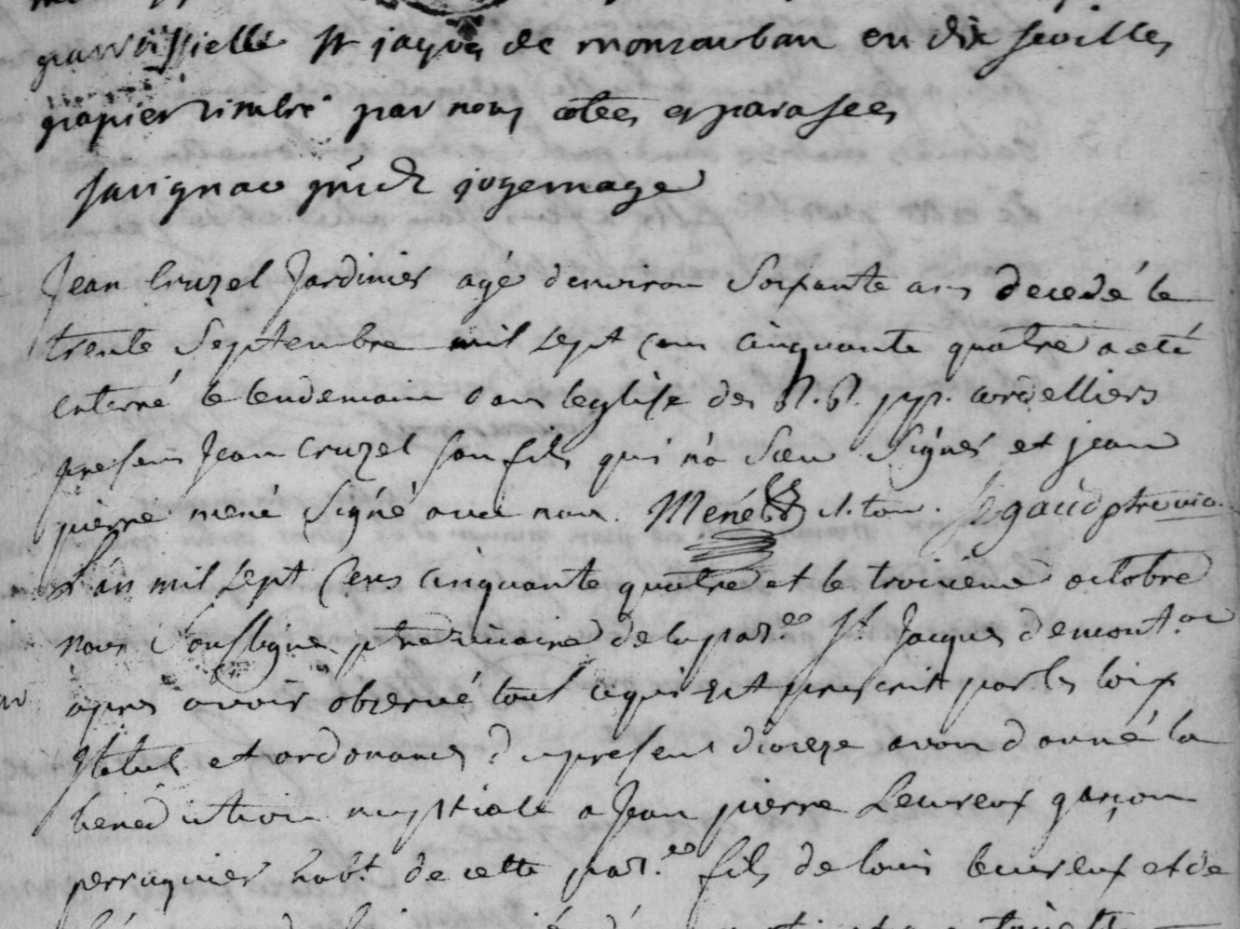 parroissielle st jaques de montauban en dix feuilles
papier timbré par nous cotées et parafees
Savignac jugemage
Jean Cruzel Jardinier agé denviron Soixante ans decedé le
trente Septembre mil sept cens cinquante quatre a eté
enterré le lendemain dans leglise des R.R. pp. cordelliers
presens Jean Cruzel son fils qui n'a Sceu Signer et jean
pierre mené Signé avec nous. Mené
L'an mil sept Cens cinquante quatre et le troisieme octobre
nous Soussigné ptre vicaire de la par.ee St Jacques de mont.an
apres avoir observé tout ce qui est prescrit par les loix
Statuts et ordonances du present diocese avons donné la
benediction nuptiale a Jean pierre Leureux garçon
perruquier habt. de cette par.ee fils de louis leureux et de